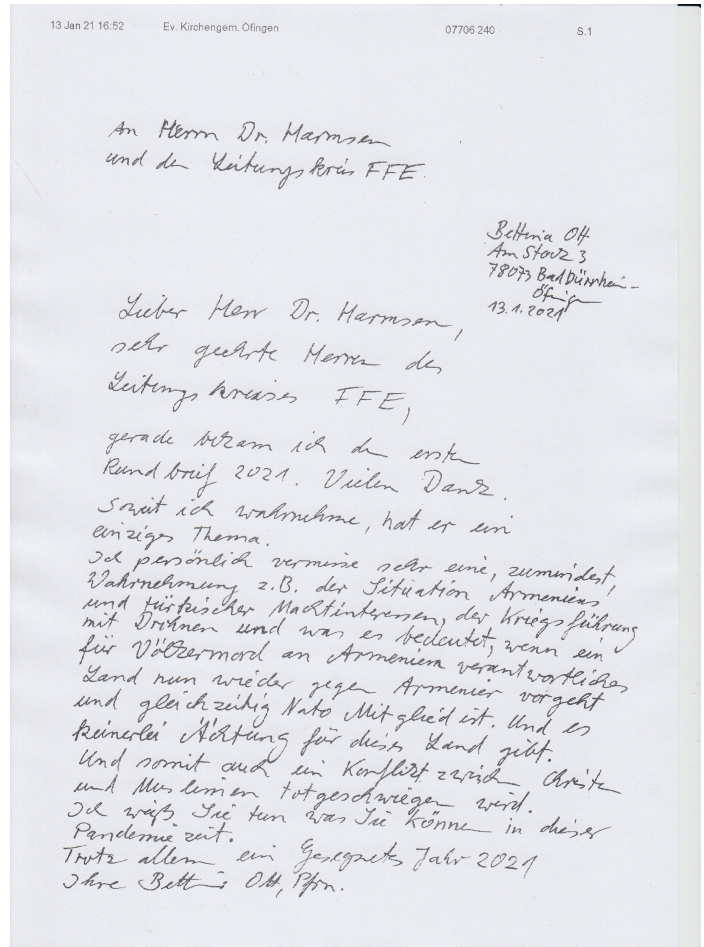 13 Jan 21 16:52 Ev. Kirchengem. Öfingen 07706 240 S.1
An Herrn Dr. Harmsen
und den Leitungskreis FFE.
Bettina Ott
Am Stock 3
78073 Bad Dürrheim -
Öfingen
13.1.2021
Lieber Herr Dr. Harmsen,
sehr geehrte Herren des
Leitungskreises FFE,
gerade bekam ich den ersten
Rundbrief 2021. Vielen Dank.
Soweit ich wahrnehme, hat er ein
einziges Thema.
Ich persönlich vermisse sehr eine, zumindest,
Wahrnehmung z.B. der Situation Armeniens
und türkischer Machtinteressen, der Kriegsführung
mit Drohnen und was es bedeutet, wenn ein
für Völkermord an Armeniern verantwortliches
Land nun wieder gegen Armenier vorgeht
und gleichzeitig Nato Mitglied ist. Und es
keinerlei Ächtung für dieses Land gibt.
Und somit auch ein Konflikt zwischen Christen
und Muslimen totgeschwiegen wird.
Ich weiß Sie tun was Sie können in dieser
Pandemiezeit.
Trotz allem ein Gesegnetes Jahr 2021
Ihre Bettina Ott, Pfrn.